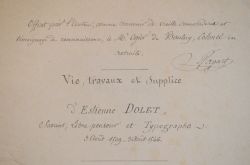 Offert par l'auteur, comme souvenir de vieille camaraderie et
témoignage de reconnaissance, à Mr de Boutry, Colonel en
retraite.
Vie, travaux et Supplice
d'Estienne DOLET,
Savant, Libre penseur et Typographe
3 Août 1509 - 3 Août 1546.